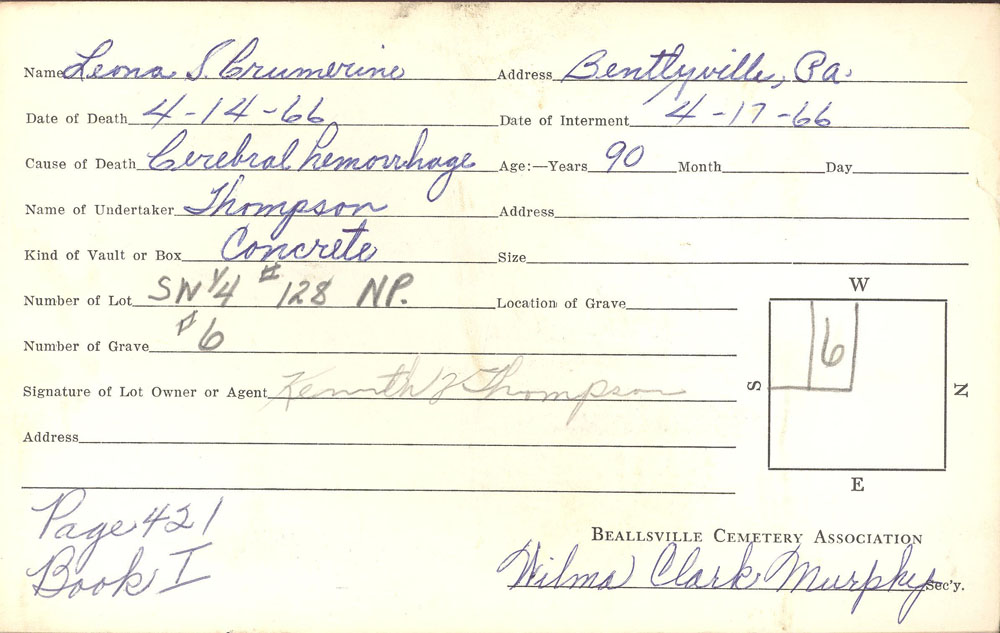 Name Leona S. Crumerine Address Bentlyville, Pa.
Date of Death 4-14-66 Date of Interment 4-17-66
Cause of Death Cerebral hemorrhage Age:—Years 90 Month Day
Name of Undertaker Thompson Address
Kind of Vault or Box Concrete Size
Number of Lot SW 1/4 # 128 NP. Location of Grave
Number of Grave # 6
Signature of Lot Owner or Agent Kenneth Thompson
Address
W
S 6 N
E
Page 421
Book I
BEALLSVILLE CEMETERY ASSOCIATION
Wilma Clark Murphy Sec'y.